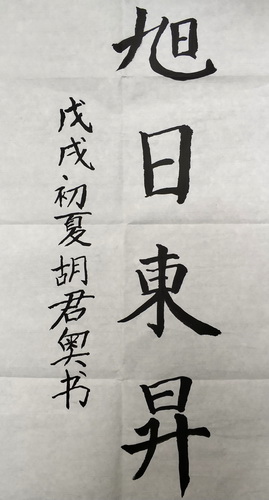 旭日東昇
戊戌初夏胡君奥书